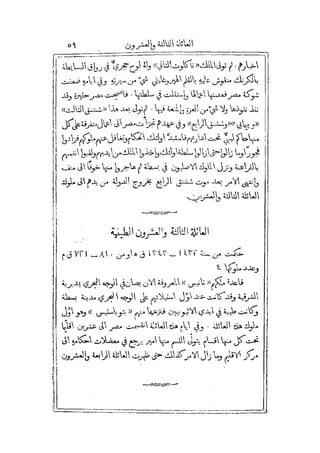 العائلة الثالثة والعشرون ٥٩
اخبارهم . ثم تولى الملك « تاكلوت الثاني » وله لوح حجري في رواق البسابطة
بالكرنك منقوش عليه بالقلم الهيروغليفي شيء من سيرته وفي ايامه ضعفت
شوكة مصر فعصتها اعمالها واستقلت في سلطتها . فاصبحت مصر حقيرة وقد
نفذ نفوذها ولا شيء من العز والمنعة فيها . ثم تولى بعد هذا « ششنق الثالث »
« وبيباي » « وششنق الرابع » وفي عهدهم تجزأت مصر الى اعمال متفرقة على كل
منها حاكم ليبي تحت ادارتهم فاستبد اولئك الحكام وتغافل عنهم ملوكهم فزادوا
فجورًا وما زالوا حتى ازالوا سلطة اولئك واخذوا الملك من ايديهم ولقبوا انفسهم
بالفراعنة ونزل الملوك الاصليون في بسطة ثم هاجروا منها خوفًا الى منف
وانتهى الامر بعد موت ششنق الرابع بخروج الدولة من يدهم الى ملوك
العائلة الثالثة والعشرين
العائلة الثالثة والعشرون الطينية
حكمت من سنة ١٤٣٢ – ١٣٤٣ ق ه او من ٨١٠ – ٧٢١ ق م
وعدد ملوكها ٤
قاعدة ملكهم « تانيس » المعروفة الان بصان في الوجه البحري بمديرية
الشرقية وقد كانت عند اول استيلائهم على الوجه البحري مدينة بسطة
وكانت طيبة في ايدي الاثيوبيين فنزعها منهم « بتوباستيس » وهو اول
ملوك هذه العائلة . وفي ايام هذه العائلة انقسمت مصر الى عشرين اقليمًا
تحت كل منها اقسام يتولى القسم منها امير يرجع في معضلات احكامه الى
مركز الاقليم وما زال الامر كذلك حتى ظهرت العائلة الرابعة والعشرون